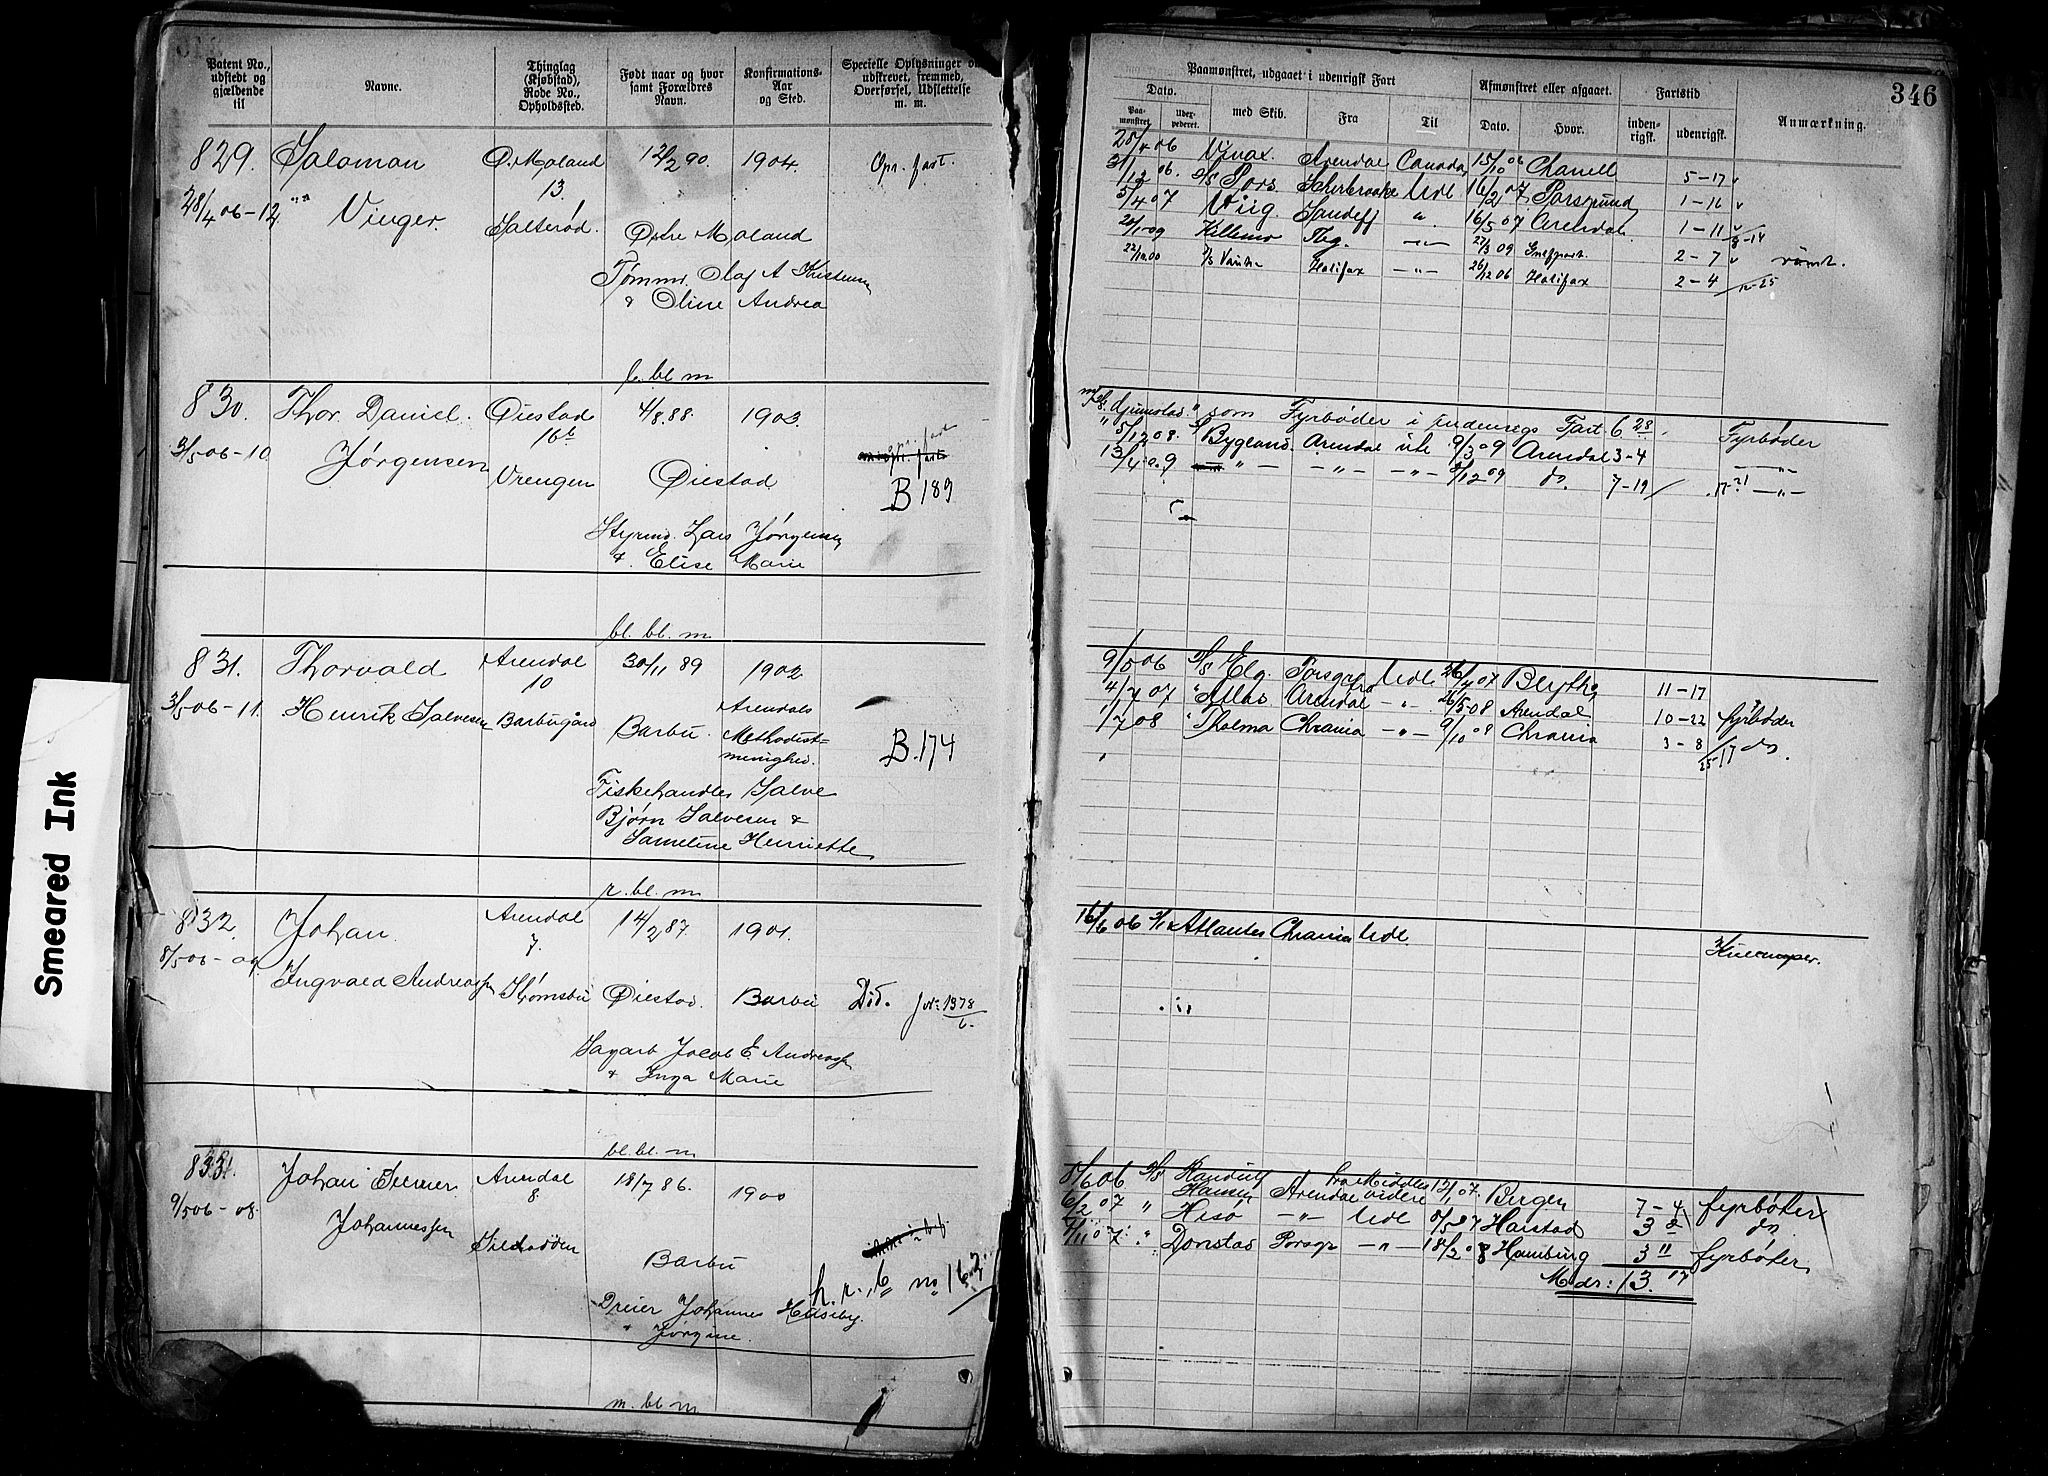 Smeared Ink
Patent No., udstedt og gjældende til
Navne.
Thinglag (Kjøbstad), Rode No., Opholdssted.
Født naar og hvor samt Forældres Navn.
Konfirmations-Aar og Sted.
Specielle Oplysninger om udskrevet, fremmed, Overførsel, Udslettelse m. m.
829. Salomon Ø. Moland 12/2 90. 1904. Opr. fart.
13
28/4 06-12 Vinger. Salterød. Østre Moland
Tømmr. Olaf A Kristensen
& Oline Andrea
l. bl m
830. Thor Daniel Øiestad 4/8.88. 1903.
16b
3/5 06-10 Jørgensen Vrengen Øiestad B 189
Styrmd. Lars Jørgensen
& Elise Marie
bl. bl. m
831. Thorvald Arendal 30/11 89 1902
10
3/5 06-11. Henrik Salvesen Barbugård Barbu. Arendals Methodist-menighed. B.174
Fiskehandler Salve
Bjørn Salvesen &
Sameline Henriette
r. bl. m
832. Johan Arendal 14/2 87 1901.
7.
8/5 06-09. Ingvald Andreassen Strømsbu Øiestad. Barbu Død. No: 1378
Sagarb Jacob E. Andreassen
& Inga Marie
bl. bl. m
833. Johan Arendal 18/7 86. 1900
8
9/5 06-08. Johannessen Barbu
Dreier Johannes Huseby
& Jørgine.
m. bl m
346
Paamønstret, udgaaet i udenrigsk Fart
Afmønstret eller afgaaet.
Fartstid
Anmærkning.
Dato.
Paa-mønstret. Udex-pederet. med Skib. Fra Til Dato. Hvor. inden-rigsk. udenrigsk.
Arendal Canada 15/10 06 5-17
31/12 06. D/S Pors Scherbrooke Udl 16/2 07 Porsgrund 1-16
5/4 07 Viig. Sandefj " 16/5 07 Arendal 1-11
Tbg. -"- 27/3 09 2-7 rømt.
Halifax -"- 26/12 06 Halifax 2-4
som Fyrbøder i indenrigs Fart 6 28 Fyrbøder
5/12 08. Bygland. Arendal ude 9/3 09 Arendal 3-4 -"-
13/4 09 -"- -"- -"- 9/12 09 do. 7-19 -"-
9/5 06 D/S Elg. Porsgr Udl 26/4 07 Blyth 11-17
4/7 07 " Atlas Arendal -"- 26/5 08 Arendal 10-22 fyrbøder
1/7 08 " Thelma Chrania -"- 9/10 08 Chrania 3-8 do
16/6 06 Atlantes Chrania Udl
8/6 06 D/S Randulf Hansen Arendal videre 12/1 07. Bergen 7-4 fyrbøter
6/2 07 " Hisø -"- Udl 8/5 07 Harstad 3 8 do
4/11 07 " Donstad Porsgr -"- 18/2 08 Hamburg 3 11 fyrbøter
Mdr: 13.